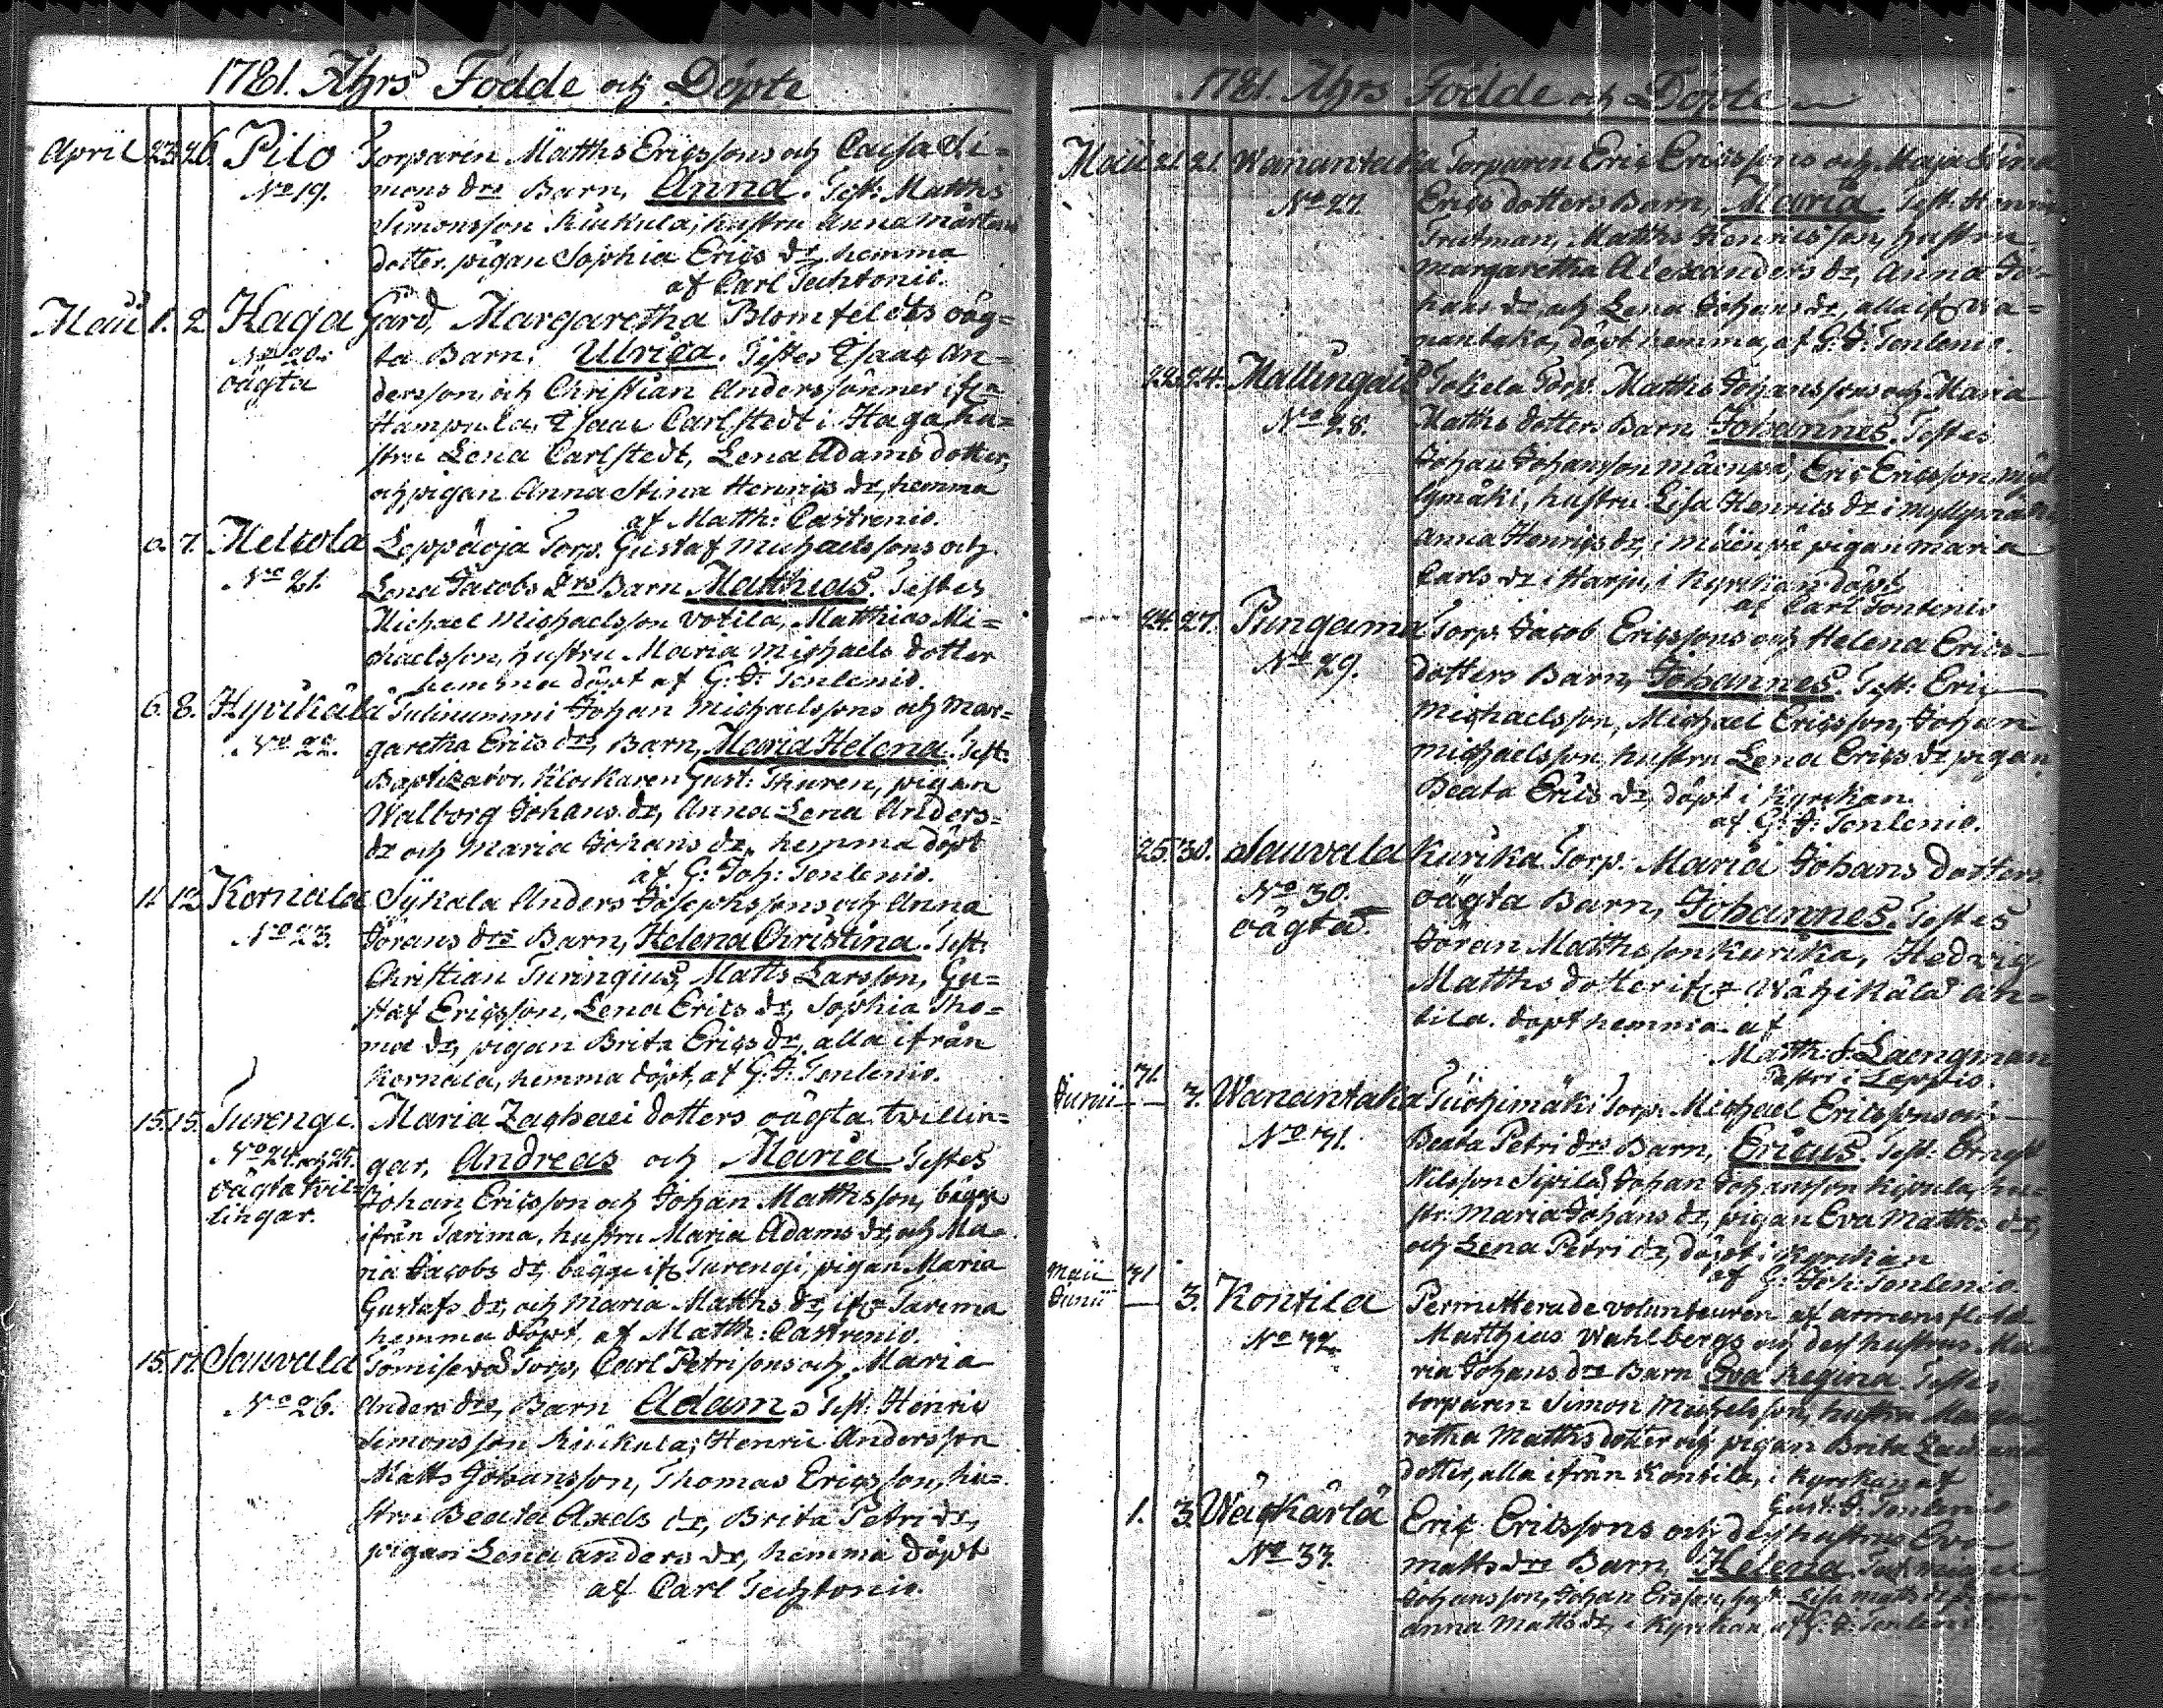 1781. Åhrs Födde och Döpte
April 23. 26. Pilo Torparen Matths Ericssons och Cajsa Si=
No 19. mons drs Barn, Anna. Test: Matths
Simonsson Kiukula, hustru Anna Mårtens
dotter. pigan Sophia Erics dr, hemma
af Carl Techtonio.
Maii 1. 2. Haga Gård, Margaretha Blomfeldts oäg=
No 20. ta Barn. Ulrica. Testes Isaac An=
oägta dersson, och Christian Anderssönner ifr
Hampula, Isaac Carlstedt i Haga, hu=
stru Lena Carlstedt, Lena Adams dotter,
och pigan Anna Stina Henrics dr, hemma
af Matth: Castrenio.
6. 7. Heltola Leppäoja Torp. Gustaf Michaelssons och
No 21. Lena Jacobs drs Barn Matthias. Testes
Michael Michaelsson Votila, Matthias Mi=
chaelsson, hustru Maria Michaels dotter
hemma döpt af G: J: Tenlenio.
6. 8. Hyvikälä Tulinummi Johan Michaelssons och Mar=
No 22. garetha Erics drs, Barn, Maria Helena. Test:
Baptizator, Klockaren Gust: Thuren, pigan
Walborg Johans dr, Anna Lena Anders=
dr och Maria Johans dr, hemma döpt
af G: Joh: Tenlenio.
11. 13. Kornala Sykala Anders Josephssons och Anna
No 23. Jörans drs Barn, Helena Christina. Test:
Christian Turingius, Matts Larsson, Gu=
staf Ericsson, Lena Erics dr, Sophia Tho=
mæ dr, pigan Brita Erics dr, alla ifrån
Kornala, hemma döpt, af G: J: Tenlenio.
15. 15. Turengi. Maria Zachæi dotters oägta twillin=
No 24. och 25. gar, Andreas och Maria Testes
oägta tvil= Johan Ericsson och Johan Matthsson, bägge
lingar. ifrån Tarima, hustru Maria Adams dr, och Ma=
ria Jacobs dr bägge ifr Turengi, pigan Maria
Gustafs dr, och Maria Matths dr, ifr Tarima
hemma döpt, af Matth: Castrenio.
15. 17. Sauvala Torp, Carl Petrisons och Maria
No 26. Anders drs, Barn Adam. Test: Henric
Simonsson Kiukula, Henric Andersson
Matts Johansson, Thomas Ericsson, hu=
stru Beata Axels dr, Brita Petri dr,
pigan Lena anders dr, hemma döpt
af Carl Techtonio.
1781. Åhrs Födde och Döpte
Maii 21. 21. Wanantaka Torparen Eric Ericssons och Maja Stina
No 27. Erics dotters Barn, Maria. Test: Henric
Trutman, Matths Henricsson, hustru
Margaretha Alexanders dr, Anna Jo=
hans dr, och Lena Johans dr, alla ifr Wa=
nantaka, döpt hemma, af G: J: Tenlenio.
22. 24. Mallingais Tokela Torp. Matths Johanssons och Maria
No 28. Matths dotters Barn Johannes. Testes
Johan Johansson Mäenpä, Eric Ericsson Myl
lymäki, hustru Lisa Henrics dr i Myllymäki
Anna Henrics dr, i Mäenpä pigan Maria
Carls dr i Harju, i Kyrckan döpt
af Carl Tontenio
24. 27. Pungama Torp. Jacob Ericssons och Helena Erics
No 29. dotters Barn, Johannes. Test: Eric
Michaelsson, Michael Ericsson, Johan
Michaelsson, hustru Lena Erics dr, pigan
Beata Erics dr, döpt i Kyrckan.
af G: J: Tenlenio.
25. 30. Sauvala Kurika Torp. Maria Johans dotters
No 30. oägta Barn, Johannes. Testes
oägta Jöran Matthsson Kurika, Hedvig
Matths dotter ifr Wähikälä An=
tila. döpt hemma af
Matth: J: Laengman
Past: i Loppis.
31. Junii 3. Wanantaka Tuohimäki Torp. Michael Ericssons och
No 31. Beata Petri drs Barn, Ericus. Test: Ernst
Nilsson Sipilä, Johan Johansson Kipula, hu=
str: Maria Johans dr, pigan Eva Matths dr,
och Lena Petri dr, döpt i Kyrckan
af G: Joh: Tenlenio.
Maii 31 Junii 3. Kontila Permitterade volunteuren af armens flotta
No 32. Matthias Wahlbergs och dess hustrus Ma
ria Johans drs Barn Eva Regina. Testes
torparen Simon Michelsson, hustru Marga
retha Matths dotter och pigan Brita
dotter, alla ifrån Kontila, i Kyrckan af
Gust: J: Tenlenio
1. 3. Wägkärlä Eric Ericssons och dess hustrus Eva
No 33. Matts drs Barn, Helena. Test
Johansson, Johan Ersson, hust: Lisa Matts dr, pigan
Anna Matts dr, i Kyrckan af G: J: Tenlenio